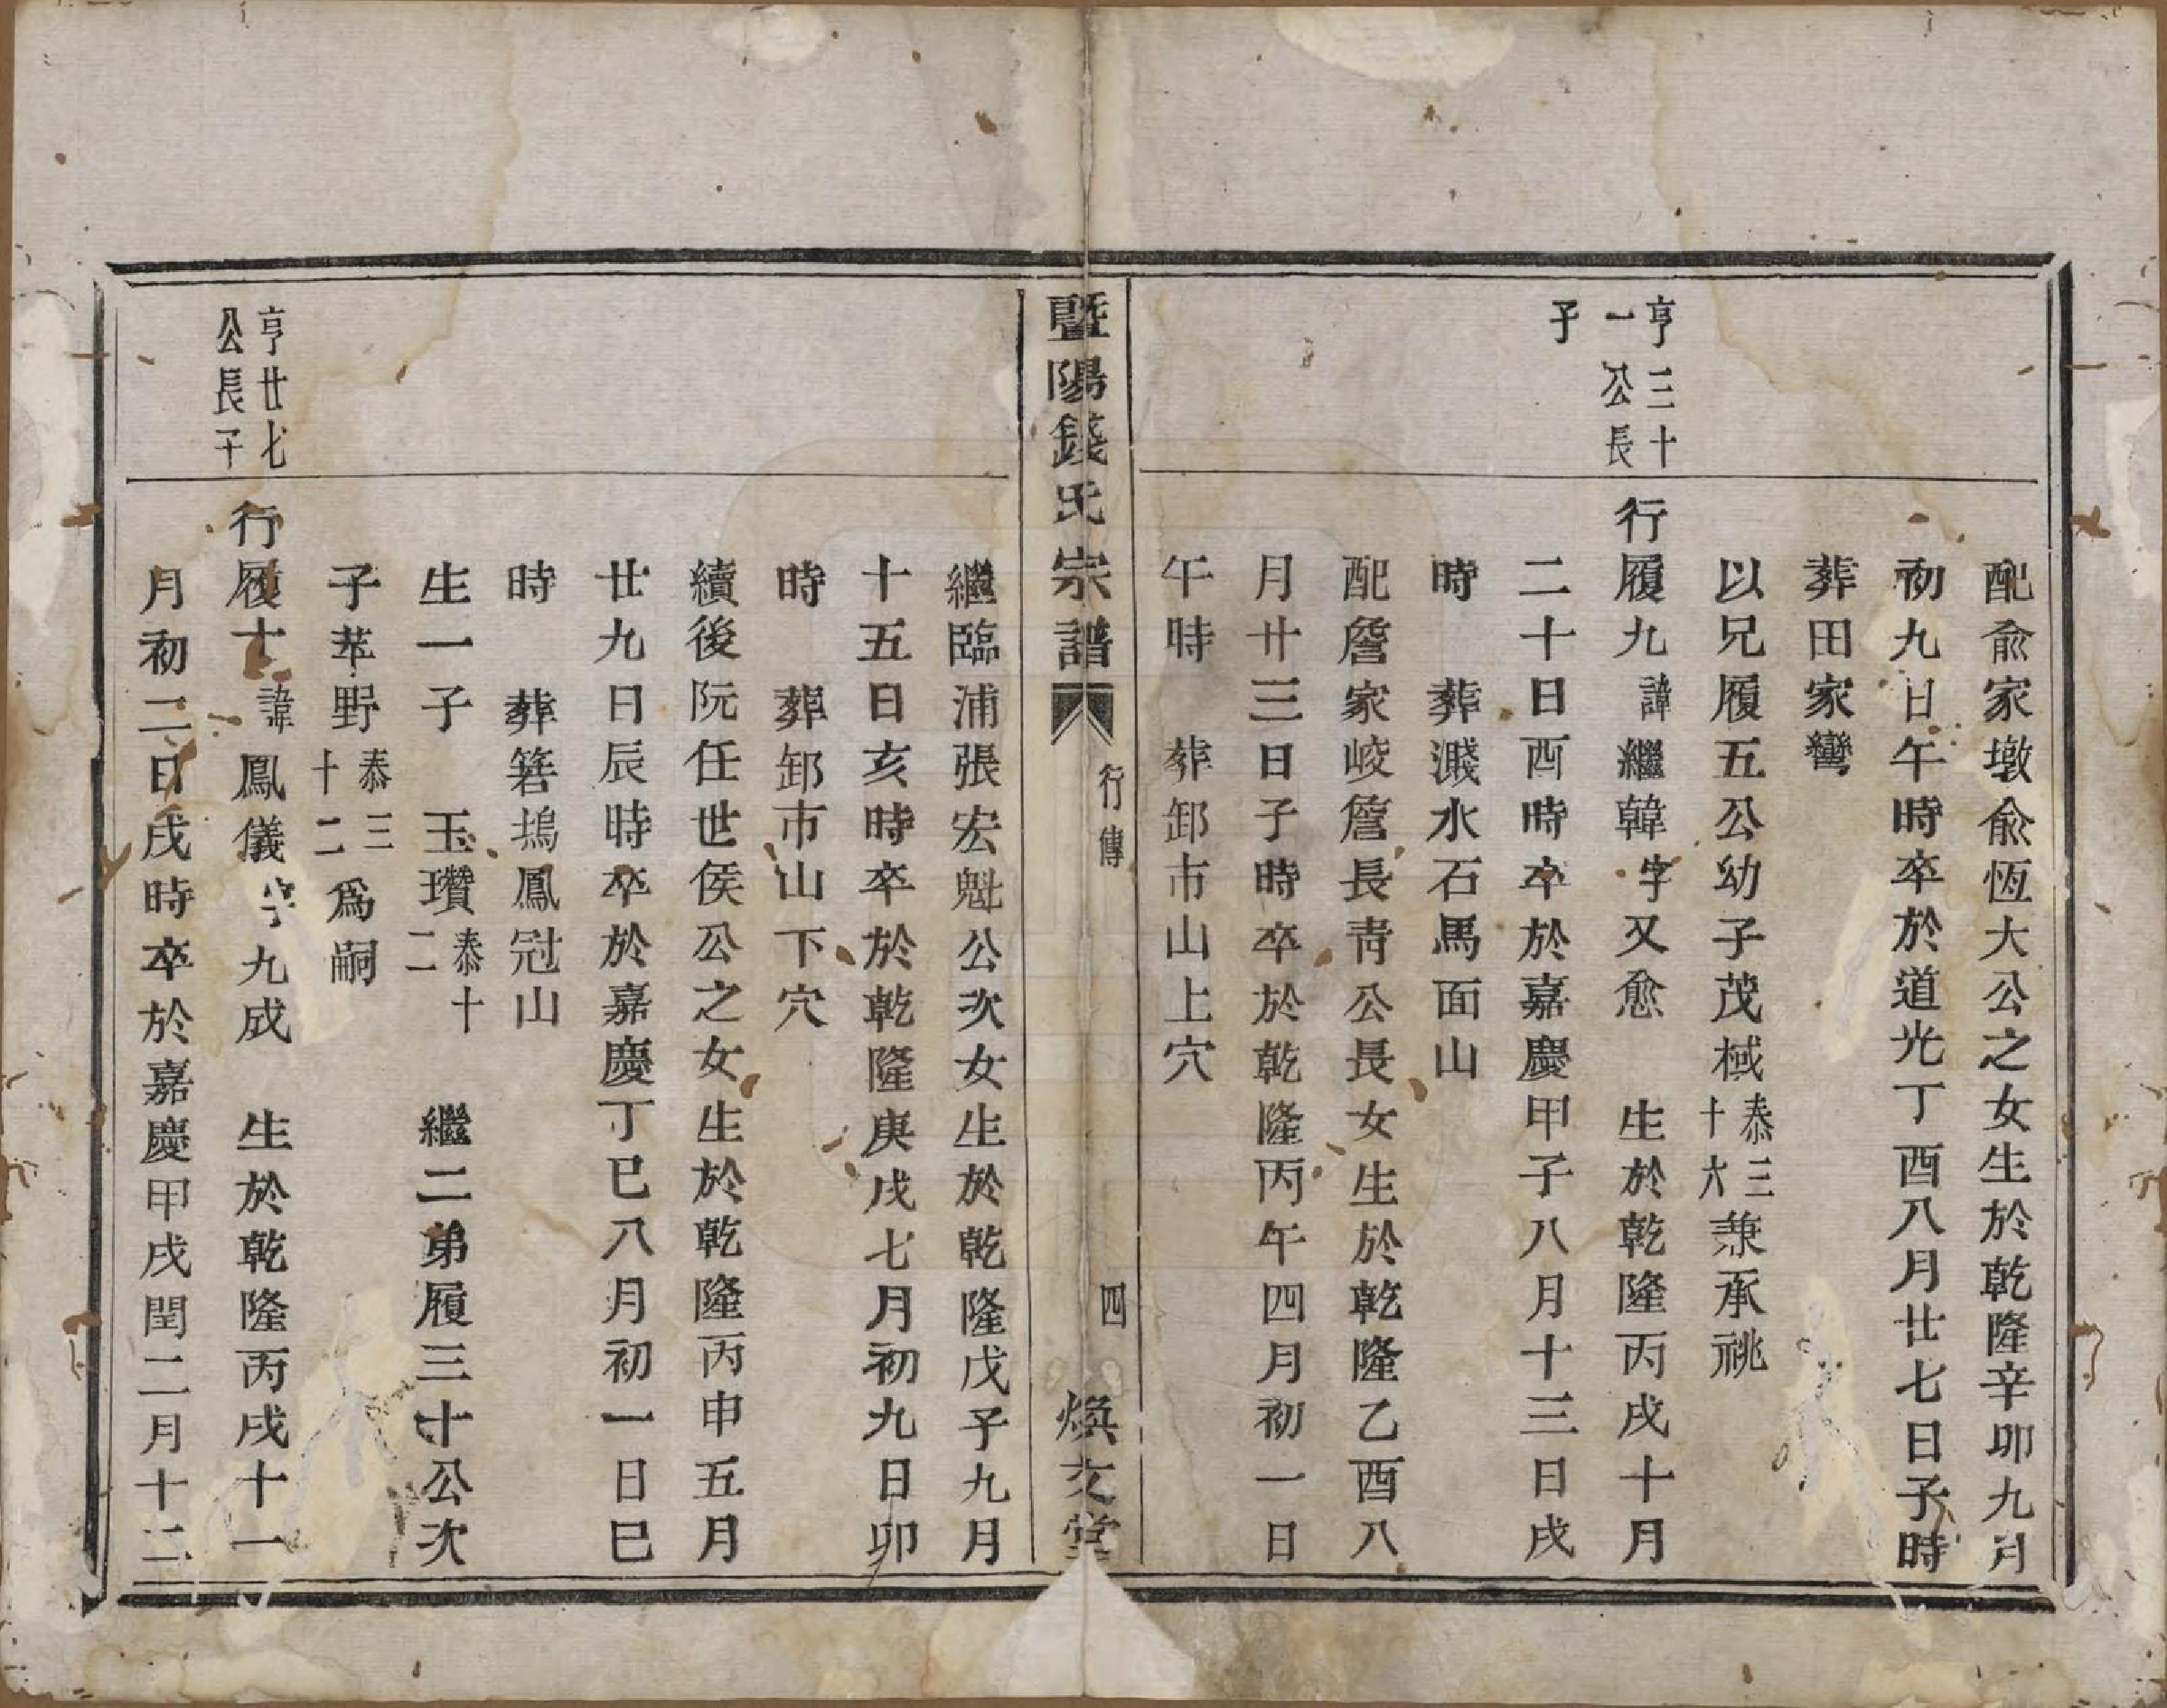 配俞家墩俞恆大公之女生於乾隆辛卯九月
初九日午時卒於道光丁酉八月廿七日子時
葬田家彎
以兄履五公幼子茂棫泰三十六兼承祧
亨三十一公長子
行履九諱繼韓字又愈 生於乾隆丙戌十月
二十日酉時卒於嘉慶甲子八月十三日戌
時 葬濺水石馬面山
配詹家崚詹長青公長女生於乾隆乙酉八
月廿三日子時卒於乾隆丙午四月初一日
午時 葬卸市山上穴
暨陽錢氏宗譜 行傳 四 煥文堂
繼臨浦張宏魁公次女生於乾隆戊子九月
十五日亥時卒於乾隆庚戌七月初九日卯
時 葬卸市山下穴
續後阮任世侯公之女生於乾隆丙申五月
廿九日辰時卒於嘉慶丁巳八月初一日巳
時 葬箬塢鳳冠山
生一子 玉瓚泰十二 繼二弟履三十公次
子苹野泰三十二爲嗣
亨廿七公長子
行履十諱鳳儀字九成 生於乾隆丙戌十一
月初二日戌時卒於嘉慶甲戌閏二月十二